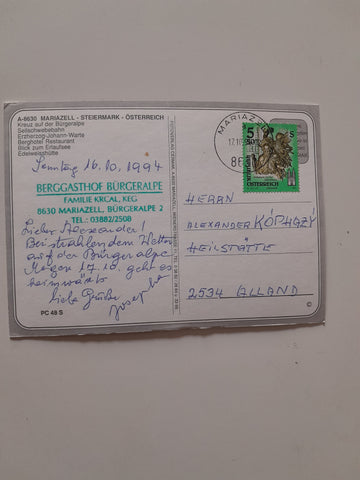 A-8630 MARIAZELL - STEIERMARK - ÖSTERREICH
Kreuz auf der Bürgeralpe
Seilschwebebahn
Erzherzog-Johann-Warte
Berghotel Restaurant
Blick zum Erlaufsee
Edelweisshütte
Sonntag 16.10.1994
BERGGASTHOF BÜRGERALPE
FAMILIE KRCAL, KEG
8630 MARIAZELL, BÜRGERALPE 2
TEL.: 03882/2508
Lieber Alexander!
Bei strahlendem Wetter
auf der Bürgeralpe
Morgen 17.10. geht es
heimwärts
liebe Grüße
Josef
PC 48 S
MARIAZELL
17.10.
5 S
ÖSTERREICH
HERRN
ALEXANDER KÓPHAZY
HEILSTÄTTE
2534 ALLAND
©